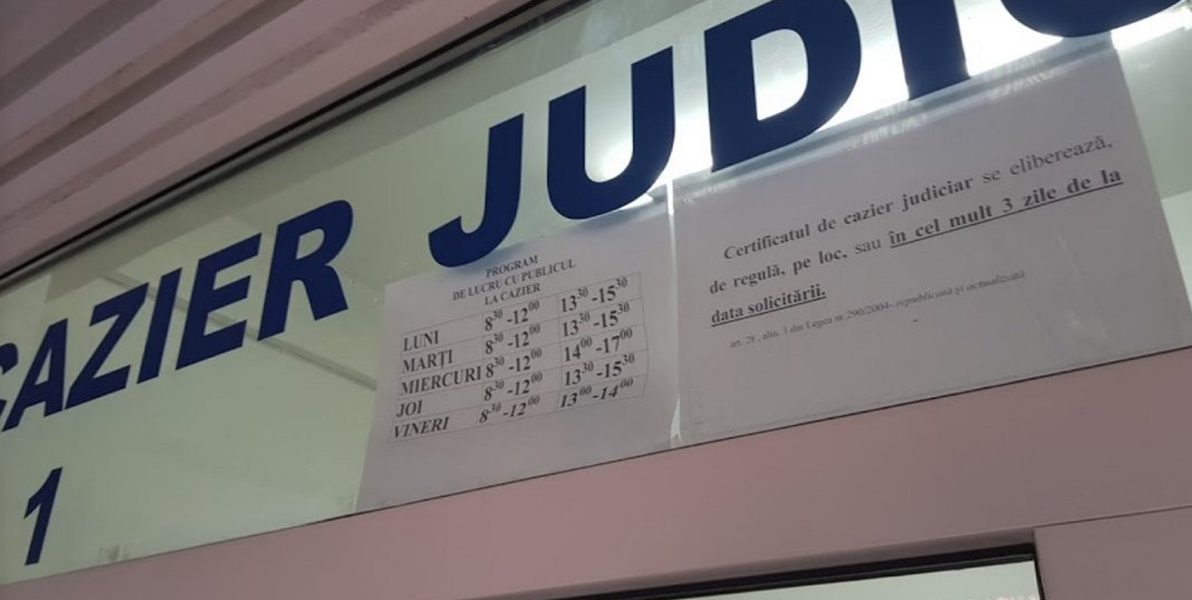 CAZIER JUDIC
1
PROGRAM
DE LUCRU CU PUBLICUL
LA CAZIER
LUNI 8³⁰-12⁰⁰ 13³⁰-15³⁰
MARȚI 8³⁰-12⁰⁰ 13³⁰-15³⁰
MIERCURI 8³⁰-12⁰⁰ 14⁰⁰-17⁰⁰
JOI 8³⁰-12⁰⁰ 13³⁰-15³⁰
VINERI 8³⁰-12⁰⁰ 13⁰⁰-14⁰⁰
Certificatul de cazier judiciar se eliberează,
de regulă, pe loc, sau în cel mult 3 zile de la
data solicitării.
art. 28, alin. 3 din Legea nr.290/2004- republicată și actualizată